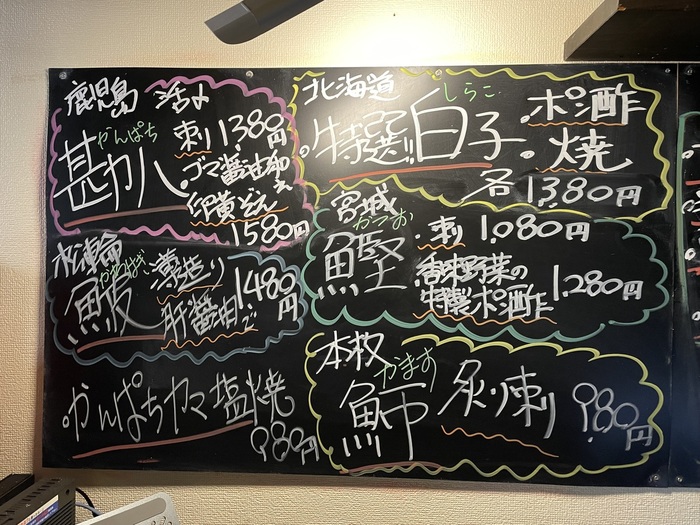 鹿児島 活〆
かんぱち
勘八
刺 1380円
ゴマ醤油和え
卵黄ぞえ
1580円
かわはぎ
薄造り
肝醤油で
1.480円
かんぱちカマ塩焼
980円
北海道
しらこ
特選 白子
ポン酢
焼
各1380円
宮城
かつお
鰹
刺 1.080円
香味野菜の
特製ポン酢
1.280円
本枚
かます
魳
炙り刺
980円